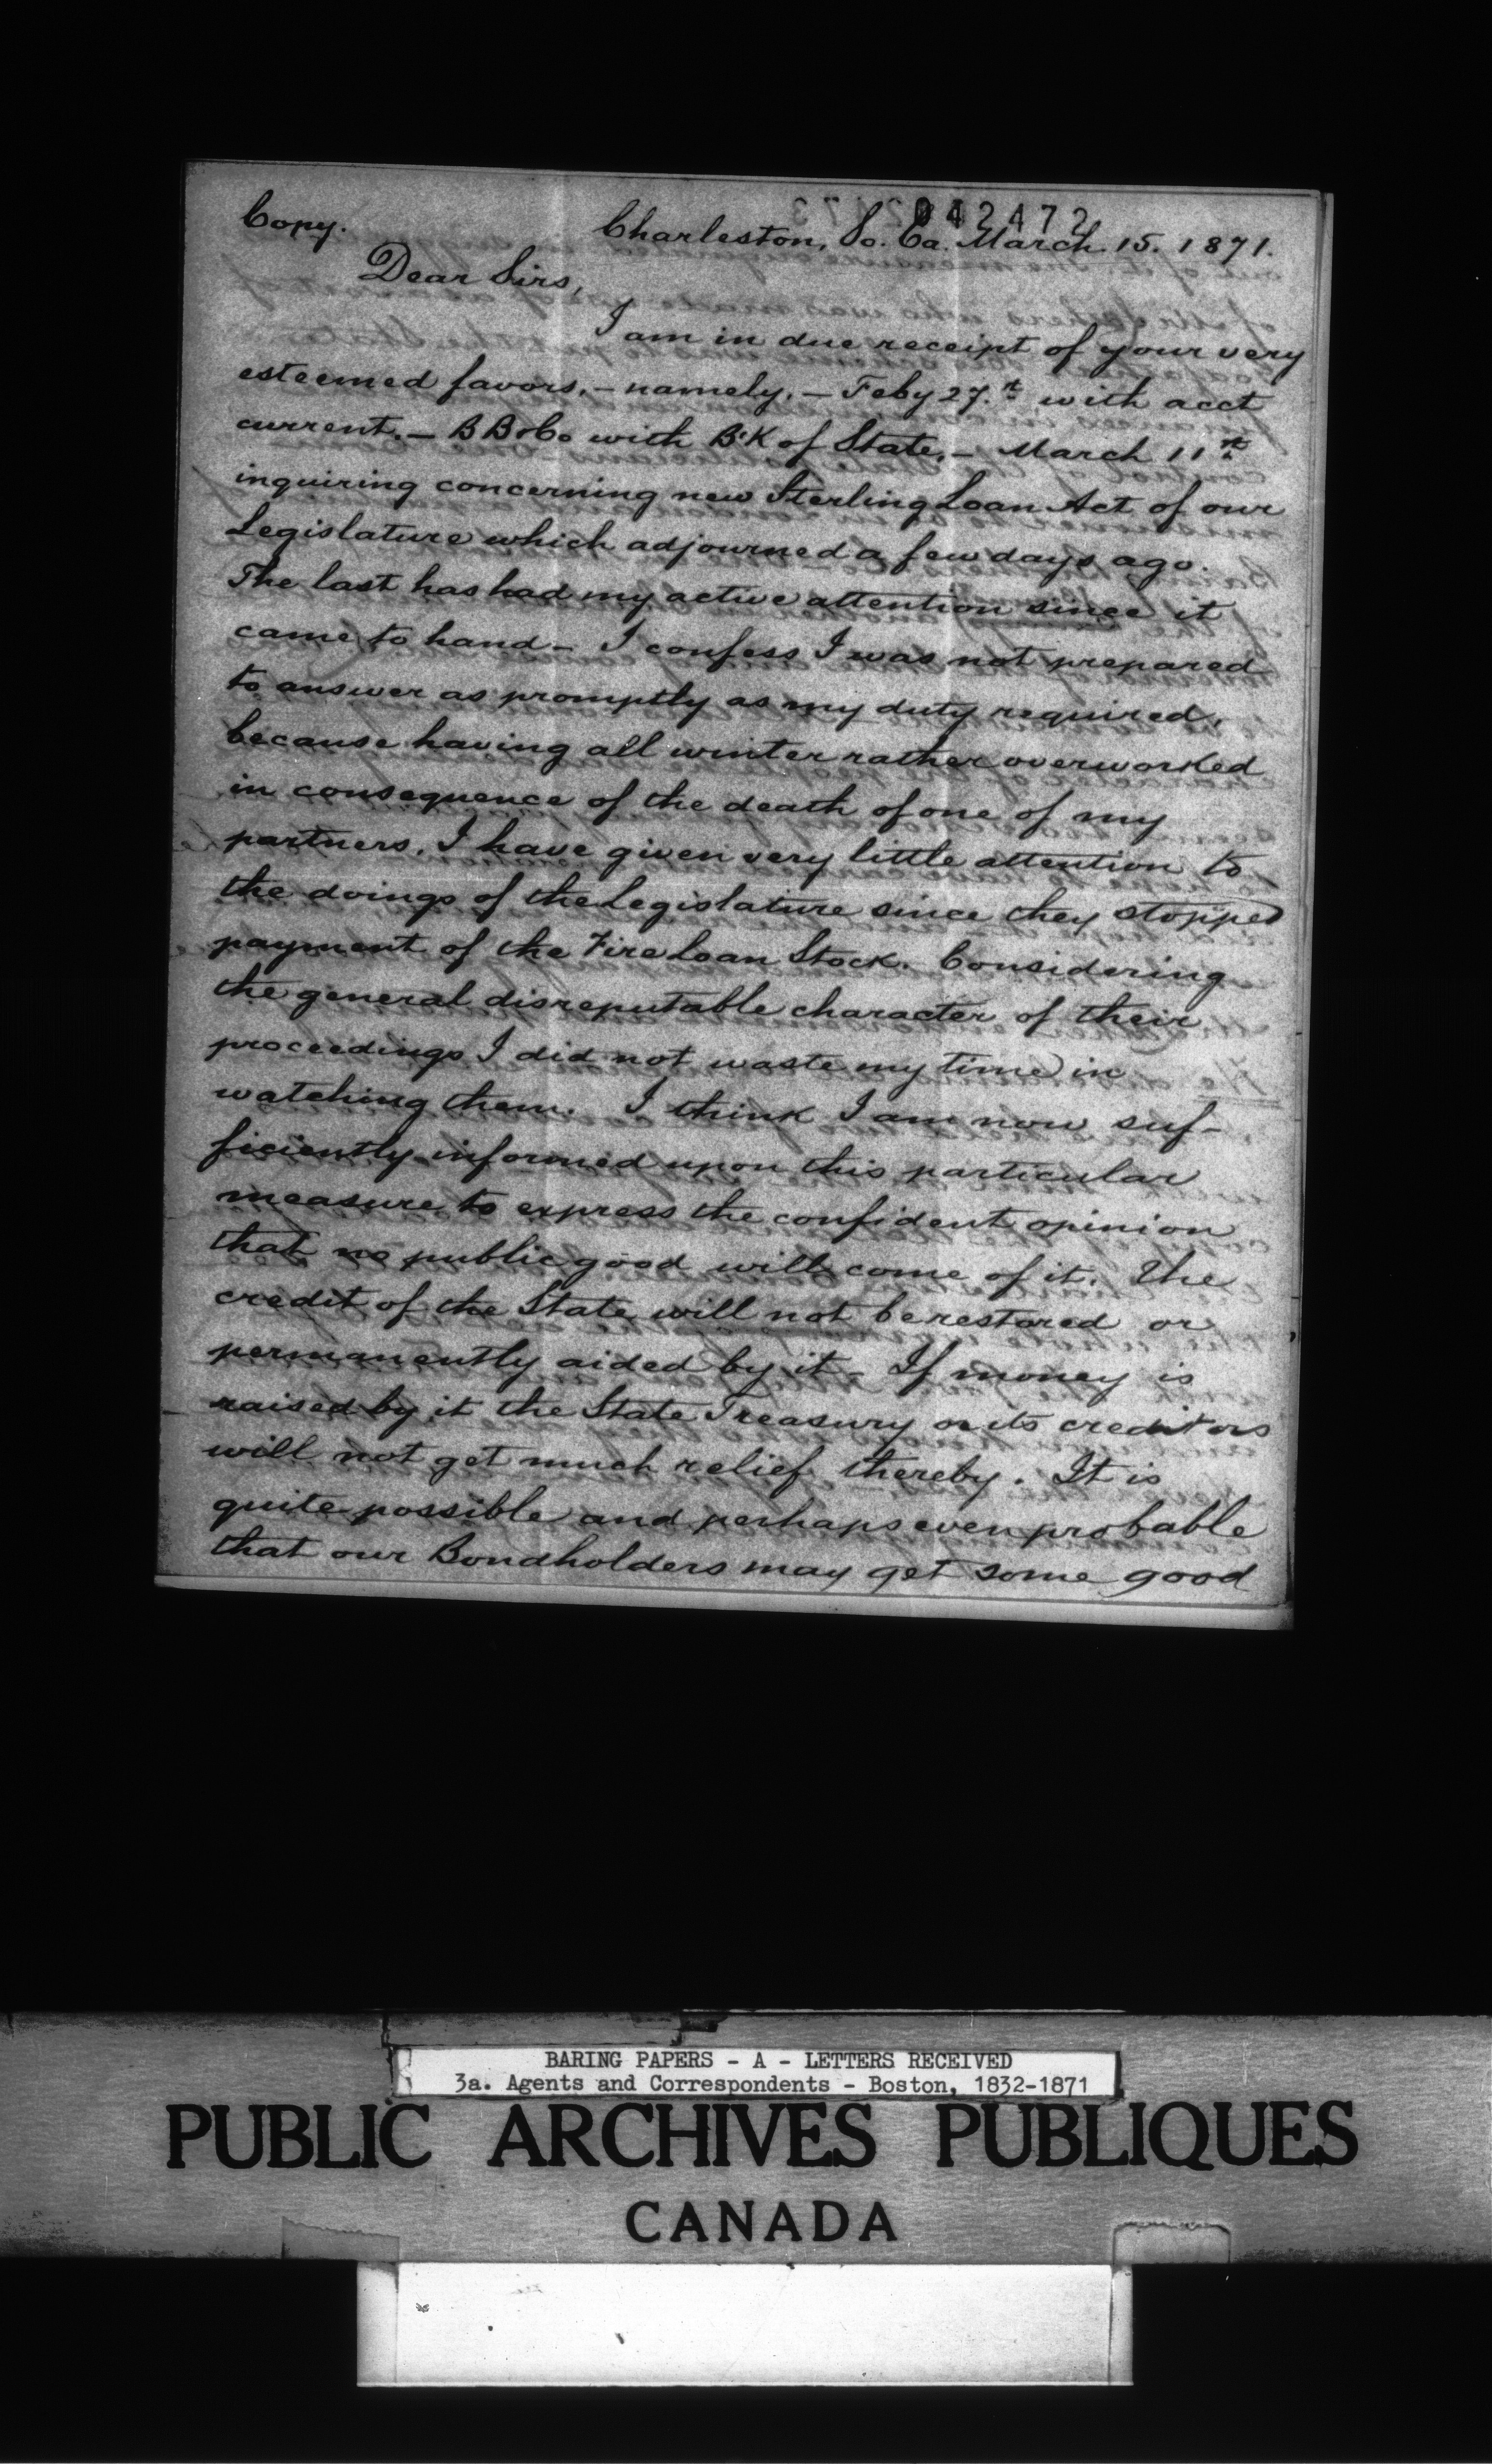 042472
Copy. Charleston, So. Ca. March. 15. 1871.
Dear Sirs,
I am in due receipt of your very
esteemed favors, - namely, - Feby 27.th with acct
current. - B B & Co with B'k of State, - March 11th
inquiring concerning new Sterling Loan Act of our
Legislature which adjourned a few days ago.
The last has had my active attention since it
came to hand - I confess I was not prepared
to answer as promptly as my duty required,
because having all winter rather overworked
in consequence of the death of one of my
partners, I have given very little attention to
the doings of the Legislature since they stopped
payment of the Fire Loan Stock. Considering
the general disreputable character of their
proceedings I did not waste my time in
watching them. I think I am now suf-
ficiently informed upon this particular
measure to express the confident opinion
that no public good will come of it. The
credit of the State will not be restored or
permanently aided by it - If money is
raised by it the State Treasury or its creditors
will not get much relief thereby. It is
quite possible and perhaps even probable
that our Bondholders may get some good
BARING PAPERS - A - LETTERS RECEIVED
3a. Agents and Correspondents - Boston, 1832-1871
PUBLIC ARCHIVES PUBLIQUES
CANADA